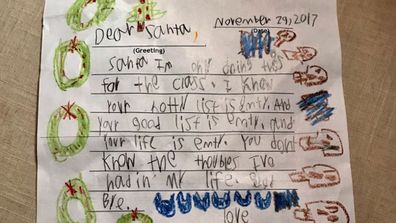 November 29, 2017
Dear Santa,
(Greeting)
Santa Im only doing this
for the class. I know
your notty list is emty. And
your good list is emty. and
your life is emty. You dont
know the troubles Ive
had in my life. Good
Bye.
love